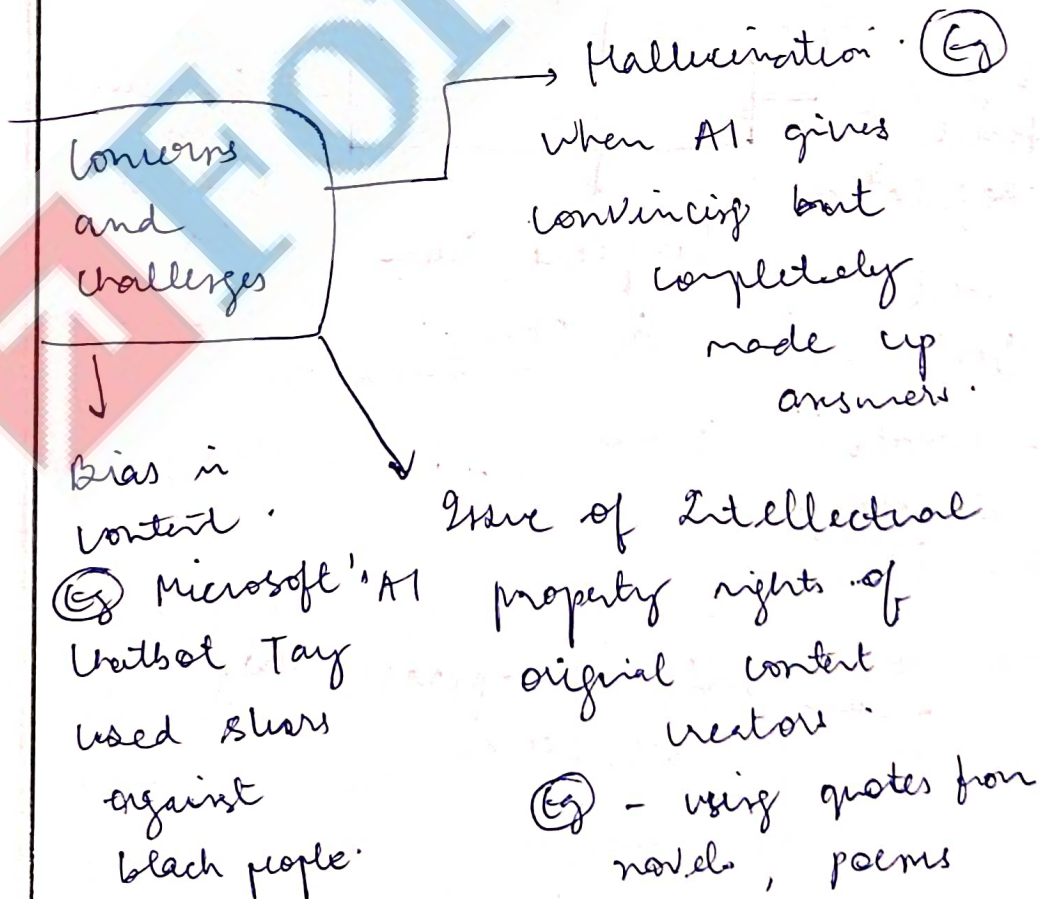 Concerns
and
Challenges
Hallucination. Eg
when AI gives
convincing but
completely
made up
answers.
Bias in
content.
Eg Microsoft's AI
Chatbot Tay
used slurs
against
black people.
Issue of Intellectual
property rights of
original content
creators.
Eg - using quotes from
novels, poems
For